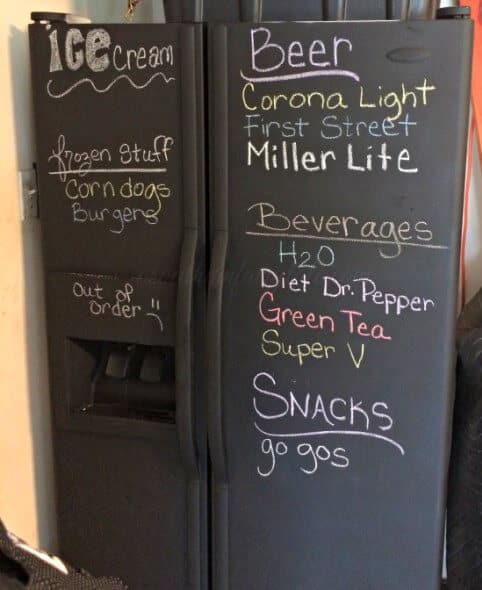 ice cream
frozen stuff
Corndogs
Burgers
Out of
order :(
Beer
Corona Light
First Street
Miller Lite
Beverages
H2O
Diet Dr. Pepper
Green Tea
Super V
SNACKS
go gos